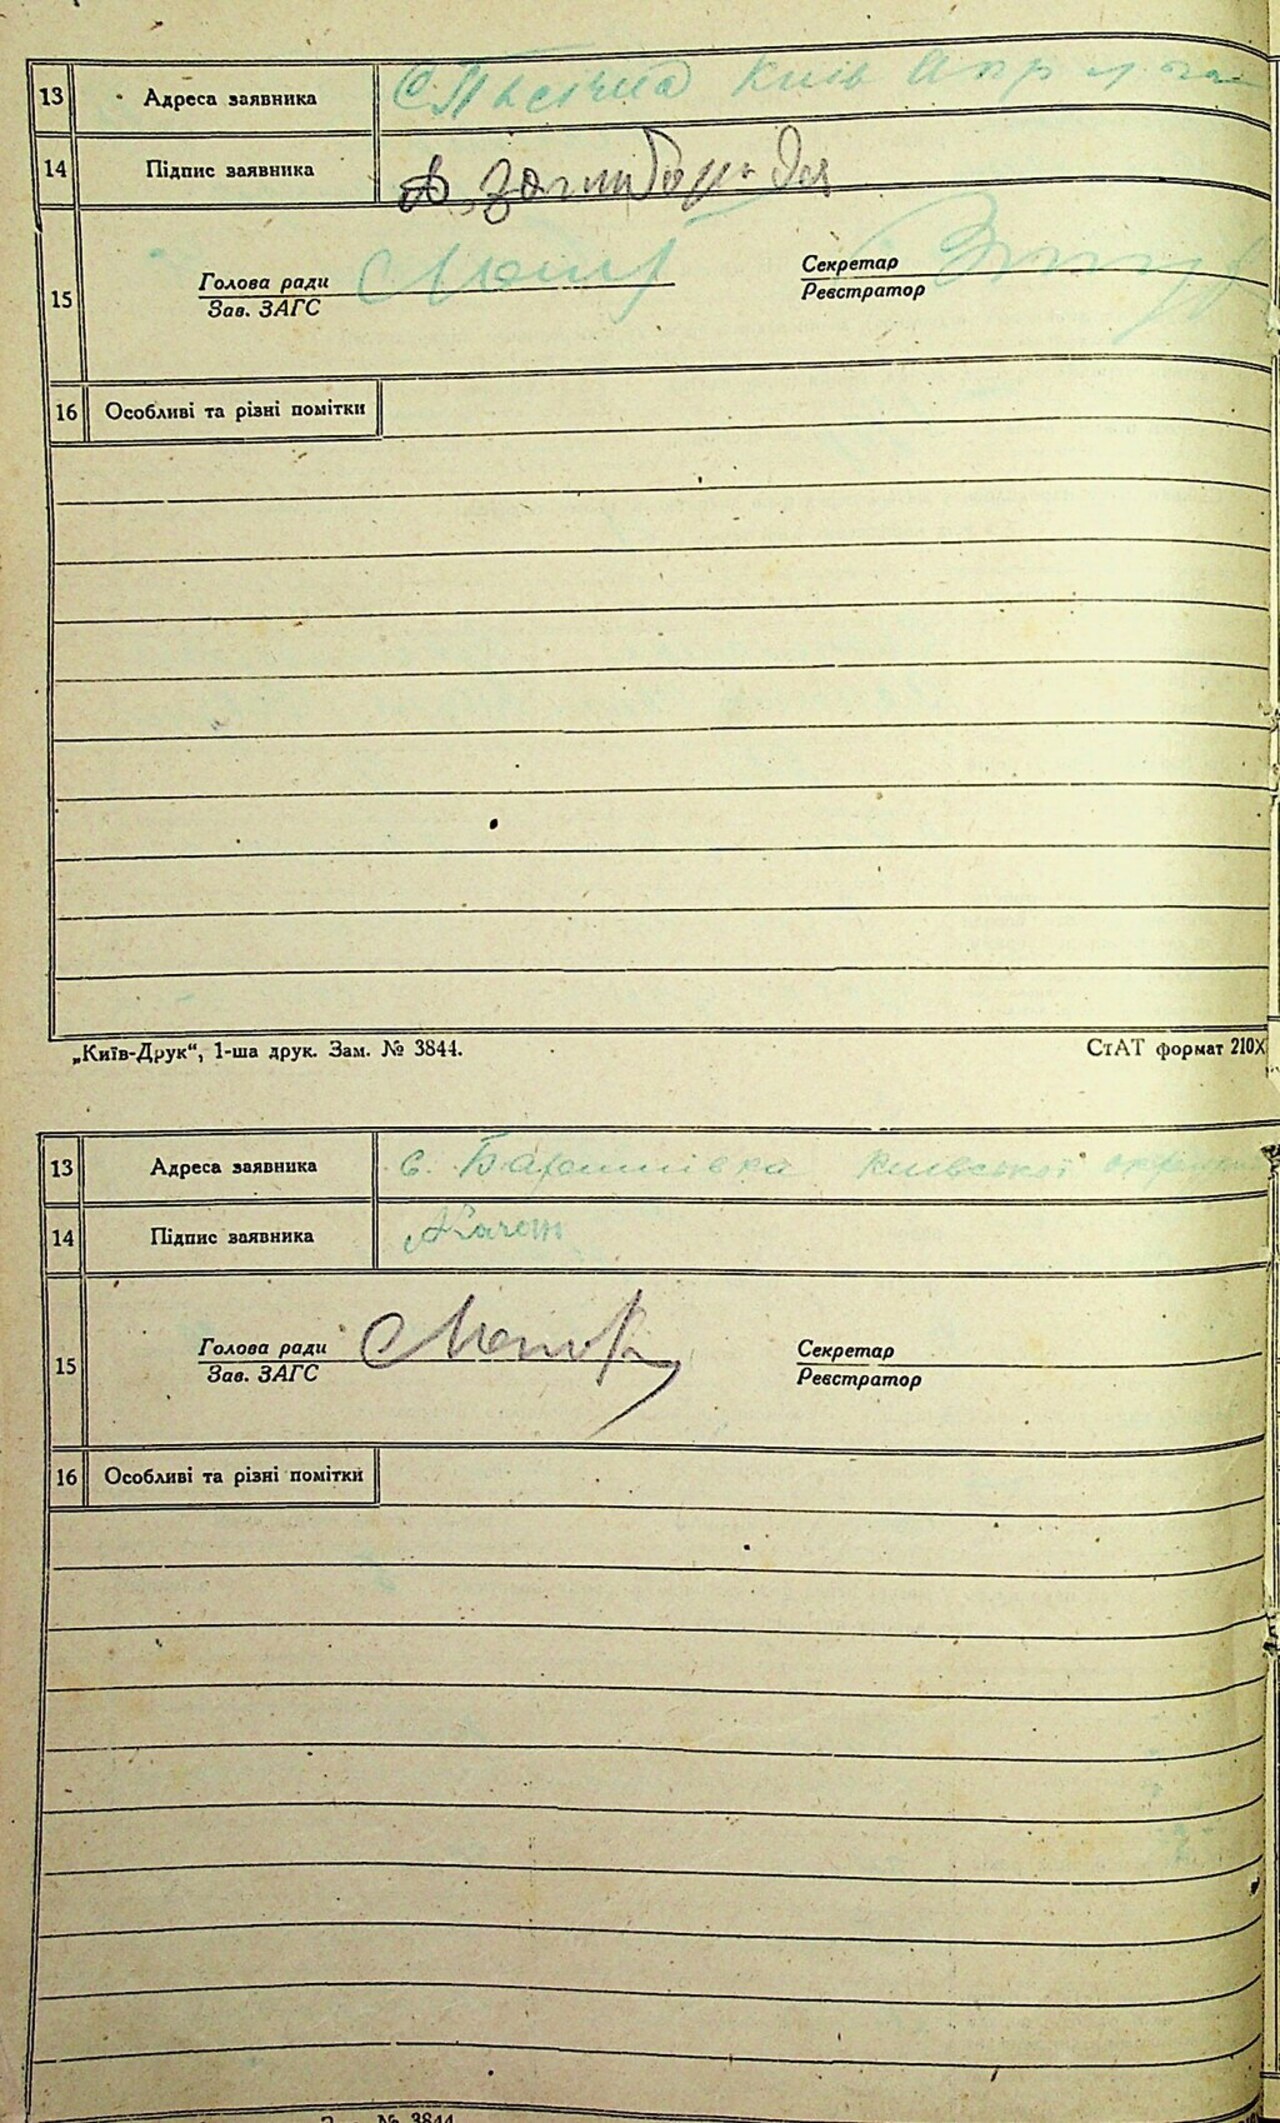 13 Адреса заявника Київ
14 Підпис заявника
15 Голова ради Секретар
Зав. ЗАГС Реєстратор
16 Особливі та різні помітки
„Київ-Друк“, 1-ша друк. Зам. № 3844. СтАТ формат 210X
13 Адреса заявника с. Баришівка Київської округи
14 Підпис заявника
15 Голова ради Секретар
Зав. ЗАГС Реєстратор
16 Особливі та різні помітки
№ 3844